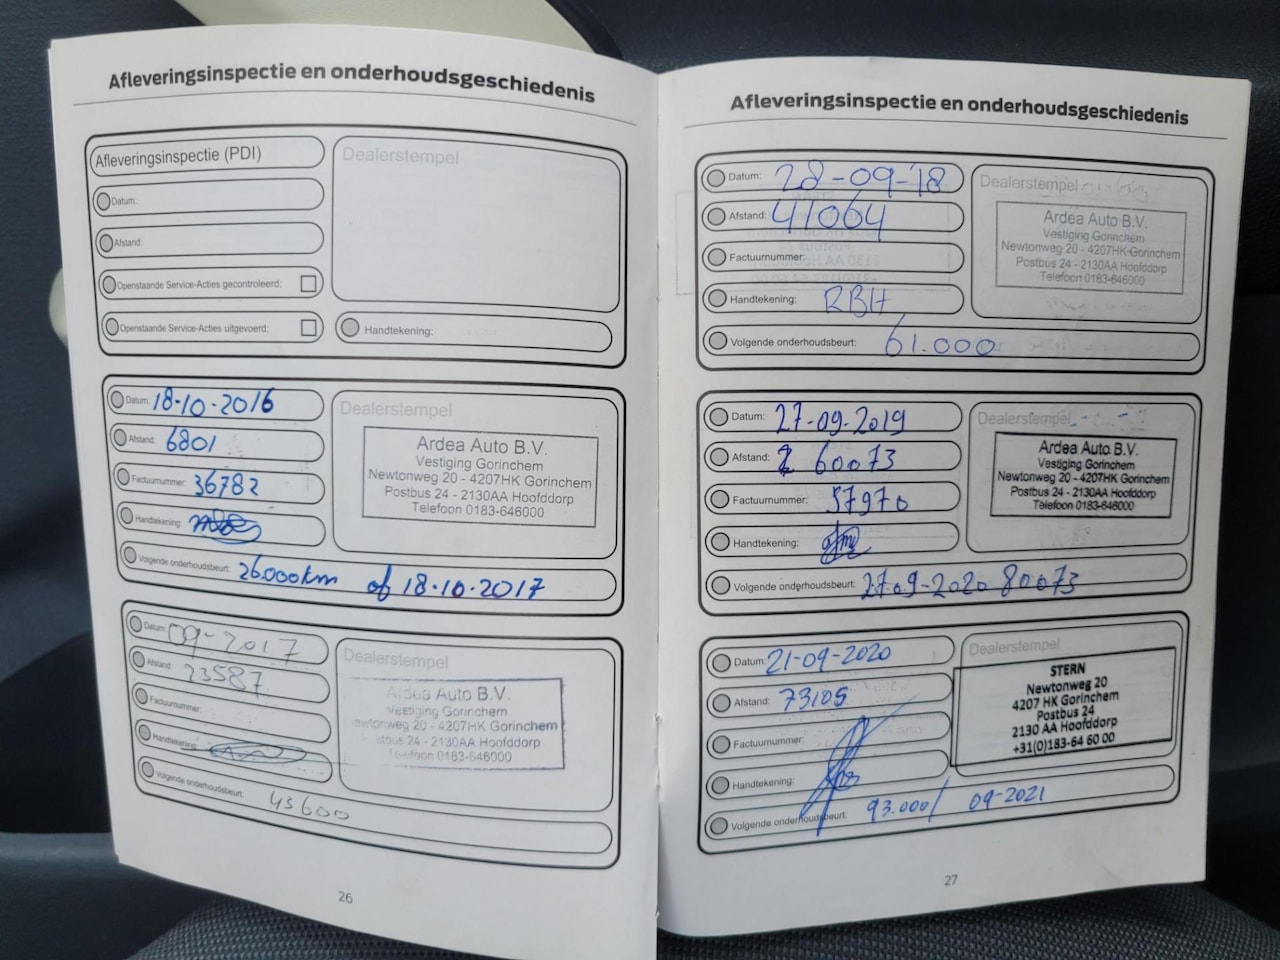 Afleveringsinspectie en onderhoudsgeschiedenis
Afleveringsinspectie (PDI)
Datum:
Afstand:
Openstaande Service-Acties gecontroleerd:
Openstaande Service-Acties uitgevoerd:
Dealerstempel
Handtekening:
Datum: 18-10-2016
Afstand: 6801
Factuurnummer: 36782
Handtekening:
Volgende onderhoudsbeurt: 26.000km of 18-10-2017
Dealerstempel
Ardea Auto B.V.
Vestiging Gorinchem
Newtonweg 20 - 4207HK Gorinchem
Postbus 24 - 2130AA Hoofddorp
Telefoon 0183-646000
Datum: 09-2017
Afstand: 23587
Factuurnummer:
Handtekening:
Volgende onderhoudsbeurt: 43600
Dealerstempel
Ardea Auto B.V.
Vestiging Gorinchem
Newtonweg 20 - 4207HK Gorinchem
Postbus 24 - 2130AA Hoofddorp
Telefoon 0183-646000
26
Afleveringsinspectie en onderhoudsgeschiedenis
Datum: 28-09-'18
Afstand: 41064
Factuurnummer:
Handtekening: RBH
Volgende onderhoudsbeurt: 61.000
Dealerstempel
Ardea Auto B.V.
Vestiging Gorinchem
Newtonweg 20 - 4207HK Gorinchem
Postbus 24 - 2130AA Hoofddorp
Telefoon 0183-646000
Datum: 27-09-2019
Afstand: 60073
Factuurnummer: 37970
Handtekening:
Volgende onderhoudsbeurt: 27-09-2020 80073
Dealerstempel
Ardea Auto B.V.
Vestiging Gorinchem
Newtonweg 20 - 4207HK Gorinchem
Postbus 24 - 2130AA Hoofddorp
Telefoon 0183-646000
Datum: 21-09-2020
Afstand: 73105
Factuurnummer:
Handtekening:
Volgende onderhoudsbeurt: 93.000/ 09-2021
Dealerstempel
STERN
Newtonweg 20
4207 HK Gorinchem
Postbus 24
2130 AA Hoofddorp
+31(0)183-64 60 00
27